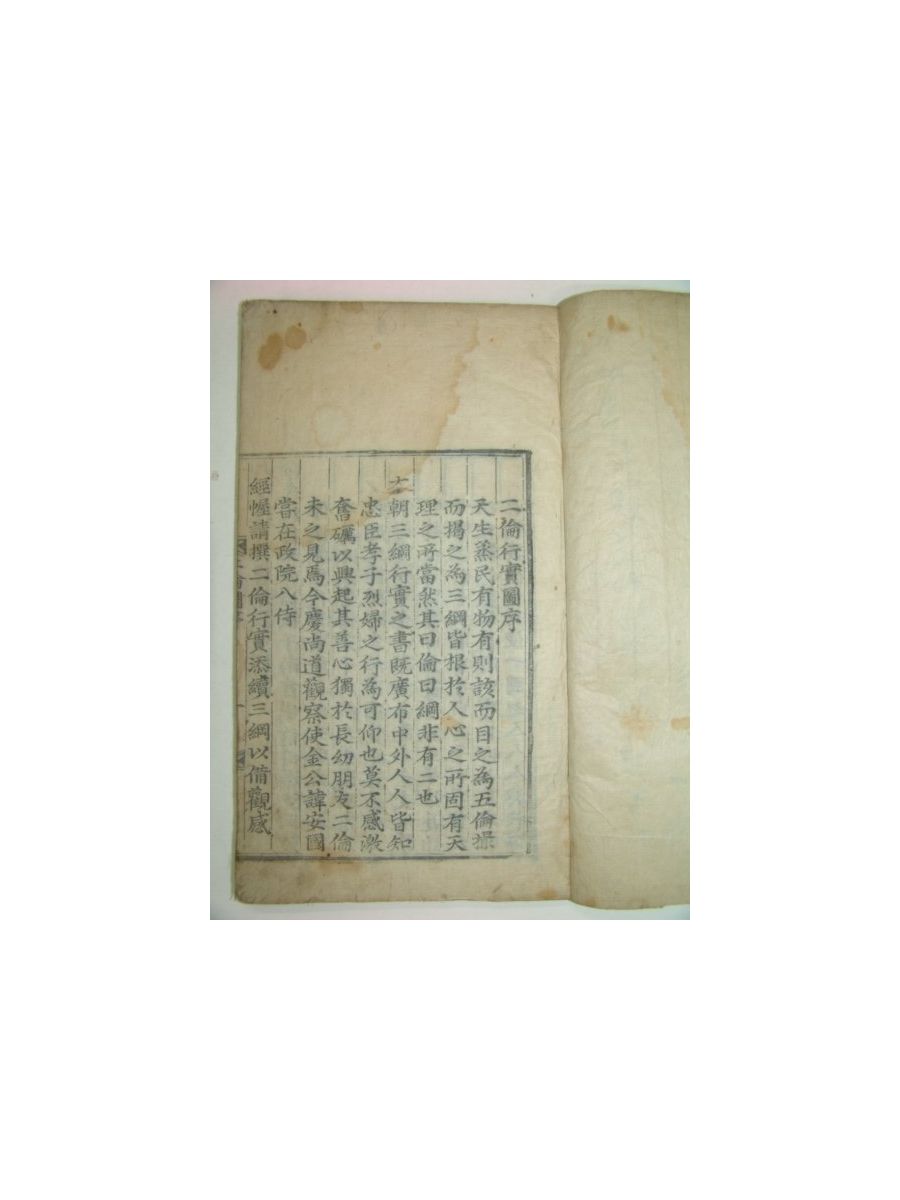 二倫行實圖序
天生蒸民有物有則該而目之為五倫操
而揭之為三綱皆根於人心之所固有天
理之所當然其曰倫曰綱非有二也
朝三綱行實之書既廣布中外人人皆知
忠臣孝子烈婦之行為可仰也莫不感激
奮礪以興起其善心獨於長幼朋友二倫
未之見焉今慶尚道觀察使金公諱安國
嘗在政院入侍
經幄請撰二倫行實添續三綱以備觀感